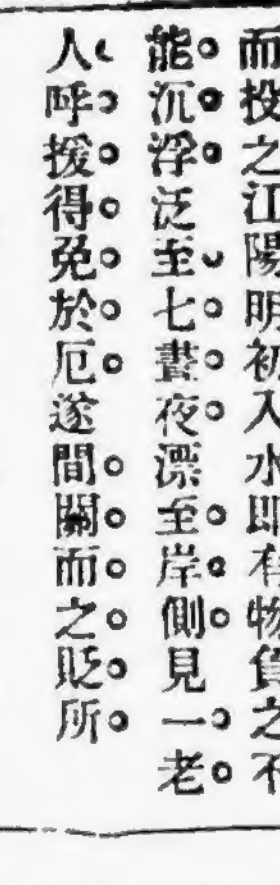 而投之江陽明初入水即有物負之不
能沉浮泛至七晝夜漂至岸側見一老
人呼援得免於厄遂間關而之貶所